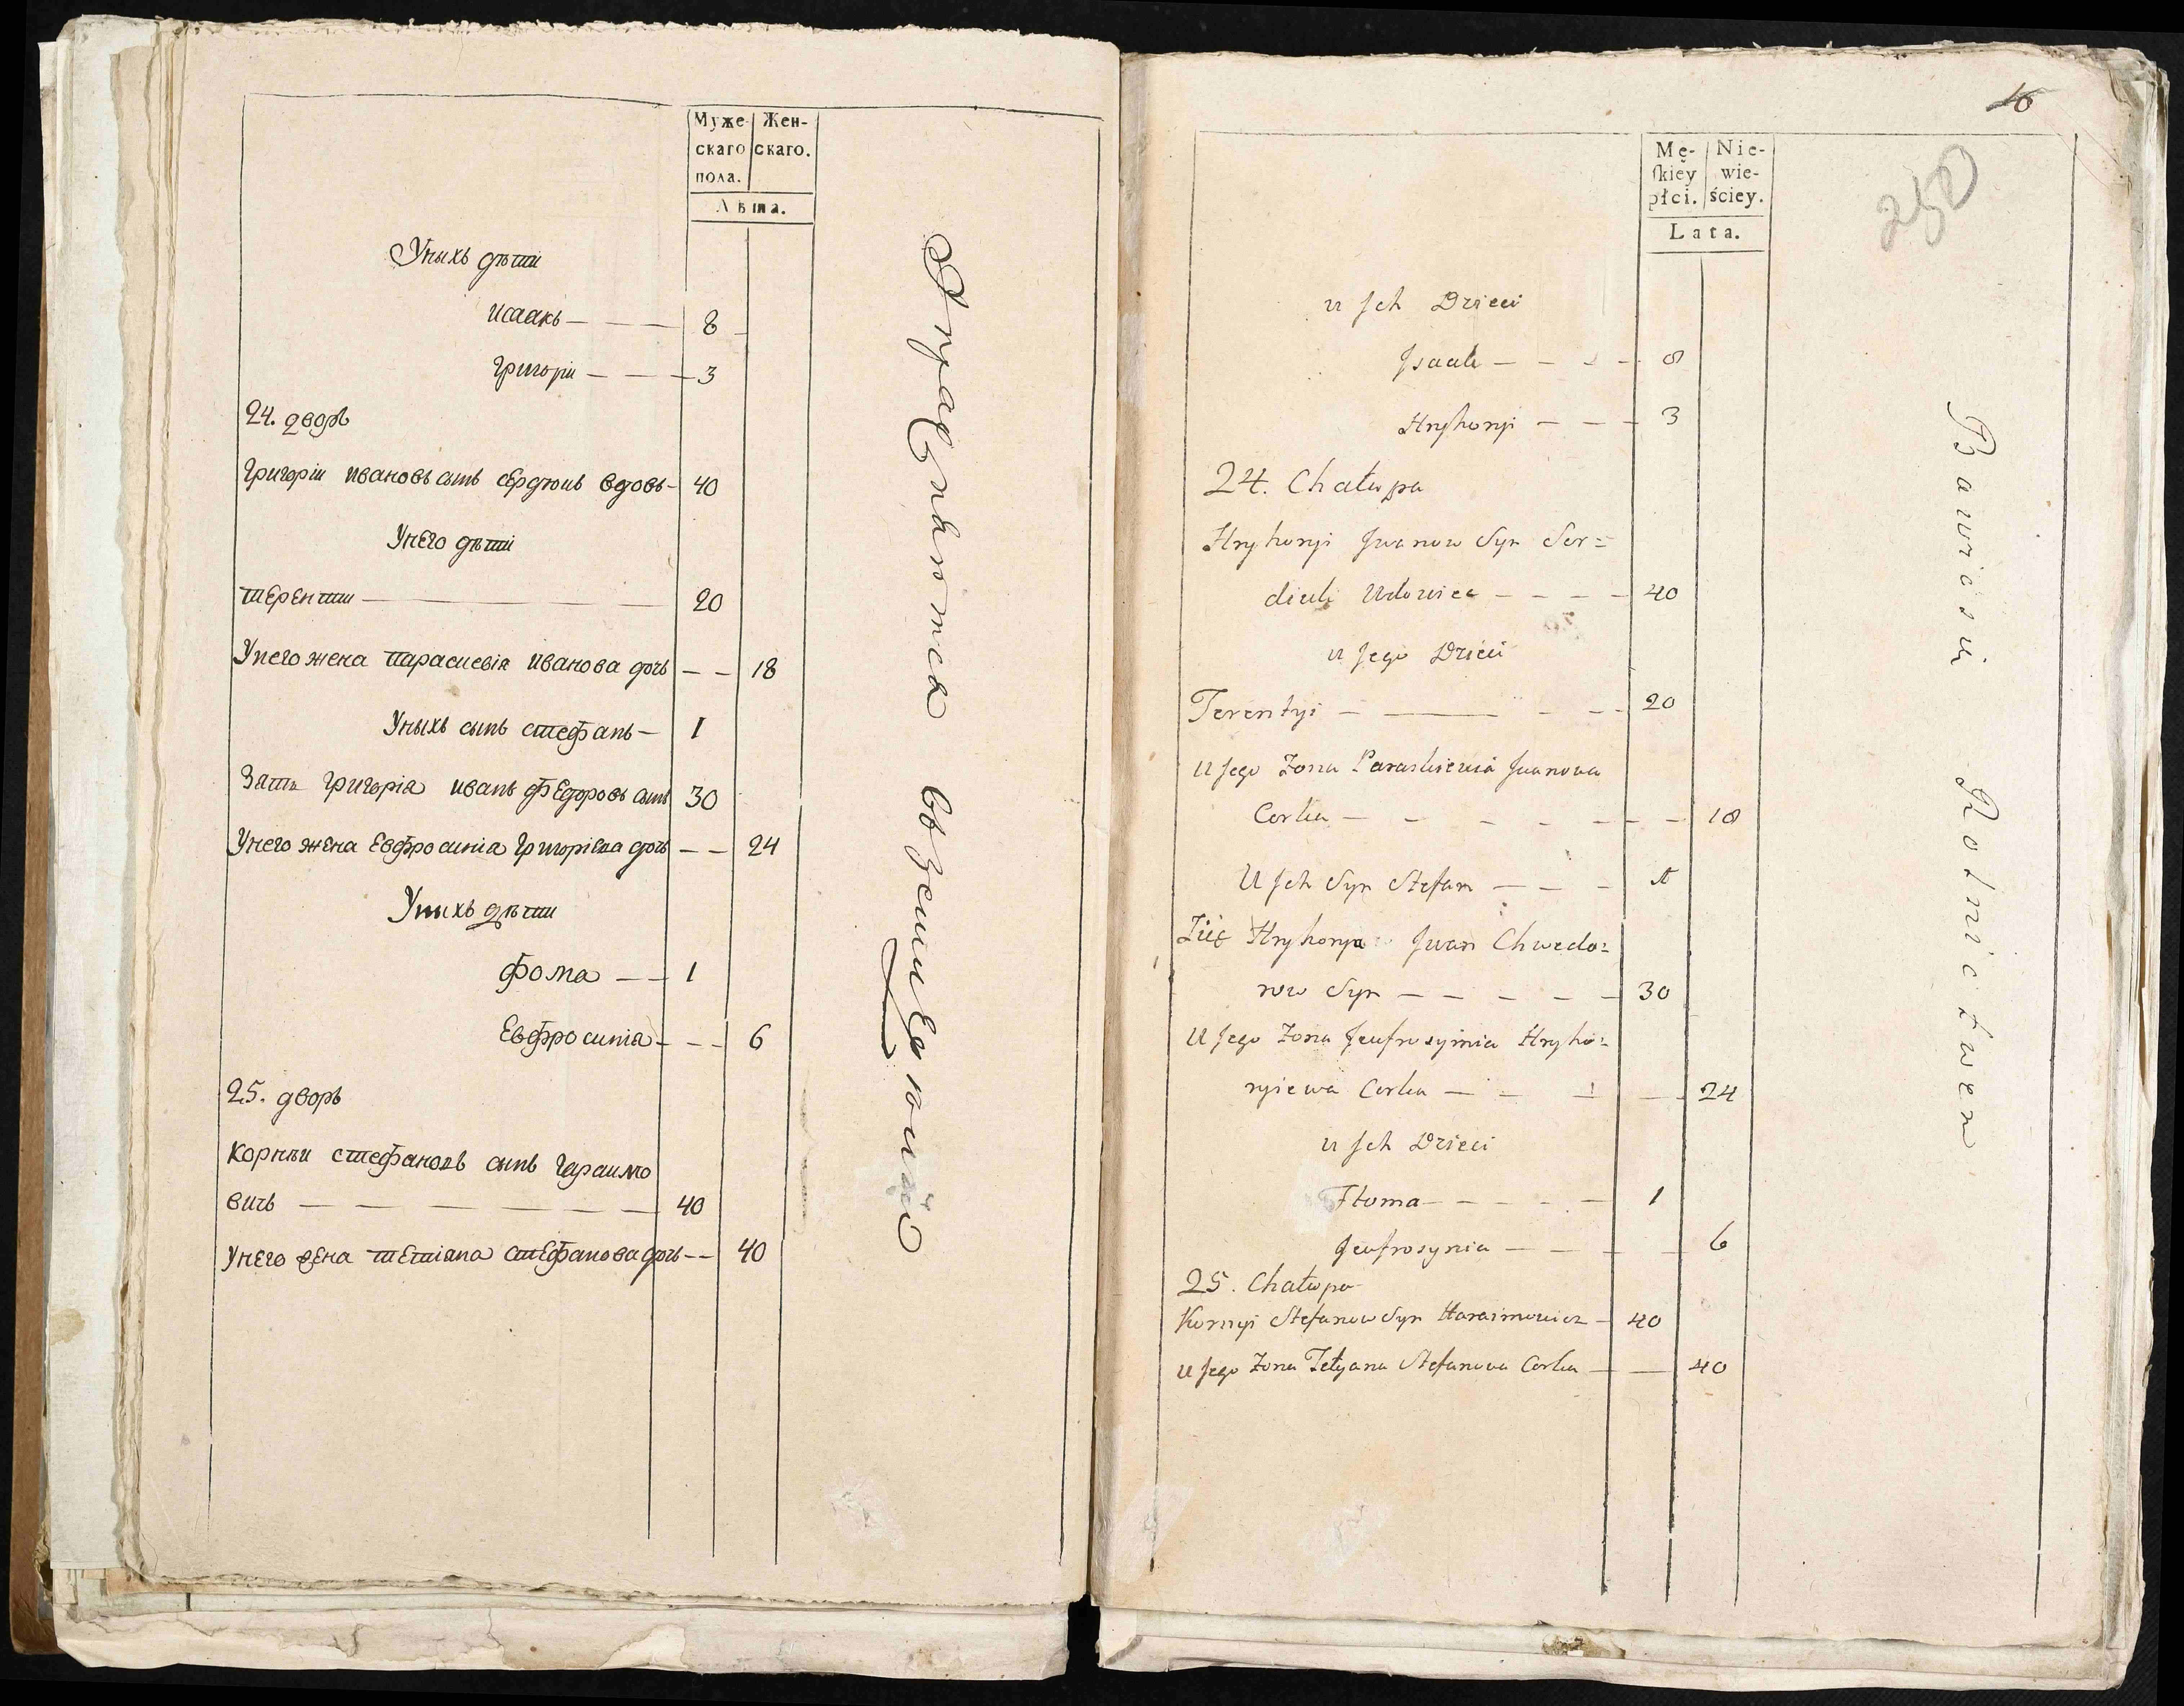 Муже- Жен-
скаго скаго.
пола.
Лѣта.
Уныхъ дѣти
Исаакъ — — — 8
Григоріи — — — 3
24. дворъ
Григоріи Ивановъ сынъ Сердюкъ вдовъ - 40
Унего дѣти
Терентии — — — 20
Унего жена Параскевія Иванова дочь — — 18
Уныхъ сынъ Стефанъ — 1
Зать Григорія Иванъ Федоровъ сынъ 30
Унего жена Евфросинія Григоріева дочь — — 24
Уныхъ дѣти
Фома — — 1
Евфросинія - - - 6
25. дворъ
Корнѣи Стефановъ сынъ Гараимо
вичъ — — — — — — 40
Унего жена Тетіана Стефанова дочь - - 40
Упражняются въ землеДѣліи
16
250
Mę- Nie-
ſkiey wie-
płci. ściey.
Lata.
u Jch Dzieci
Jsaak — — — — 8
Hryhoryi — — — 3
24. Chałupa
Hryhoryi Jwanow Syn Ser=
diuk Udowiec — — — — 40
u Jego Dzieci
Terentyi — — — — 20
U Jego Zona Paraskiewia Jwanowa
Corka — — — — — — — 18
U Jch Syn Stefan — — — 1
Zięć Hryhorya Jwan Chwedo=
row Syn — — — — — 30
U Jego Zona Jeufrosynia Hryho=
ryiewa Corka — — — — 24
u Jch Dzieci
Homa — — — — — 1
Jeufrosynia — — — — 6
25. Chałupa
Kornyi Stefanow Syn Haraimowicz — 40
U Jego Zona Tetyana Stefanowa Corka — — 40
Bawią się Rolnictwem